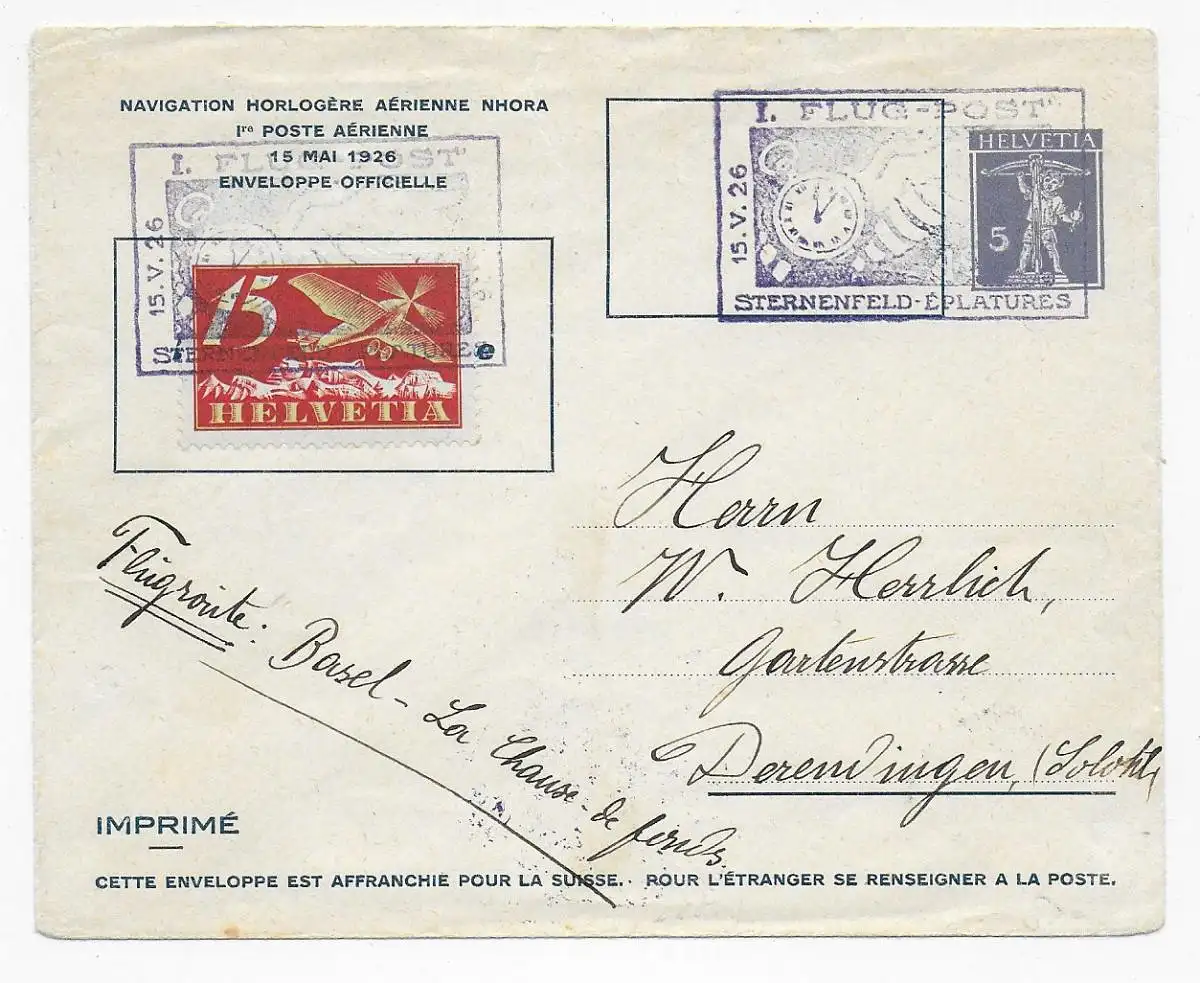 NAVIGATION HORLOGÈRE AÉRIENNE NHORA
Ire POSTE AÉRIENNE
15 MAI 1926
ENVELOPPE OFFICIELLE
I. FLUG-POST
15.V.26
STERNENFELD-ÉPLATURES
15
HELVETIA
I. FLUG-POST
15.V.26
STERNENFELD-ÉPLATURES
HELVETIA
5
Herrn
W. Herrlich,
Gartenstrasse
Derendingen, (Soloth)
Flugroute: Basel - La Chause-de fonds.
IMPRIMÉ
CETTE ENVELOPPE EST AFFRANCHIE POUR LA SUISSE. POUR L'ÉTRANGER SE RENSEIGNER A LA POSTE.